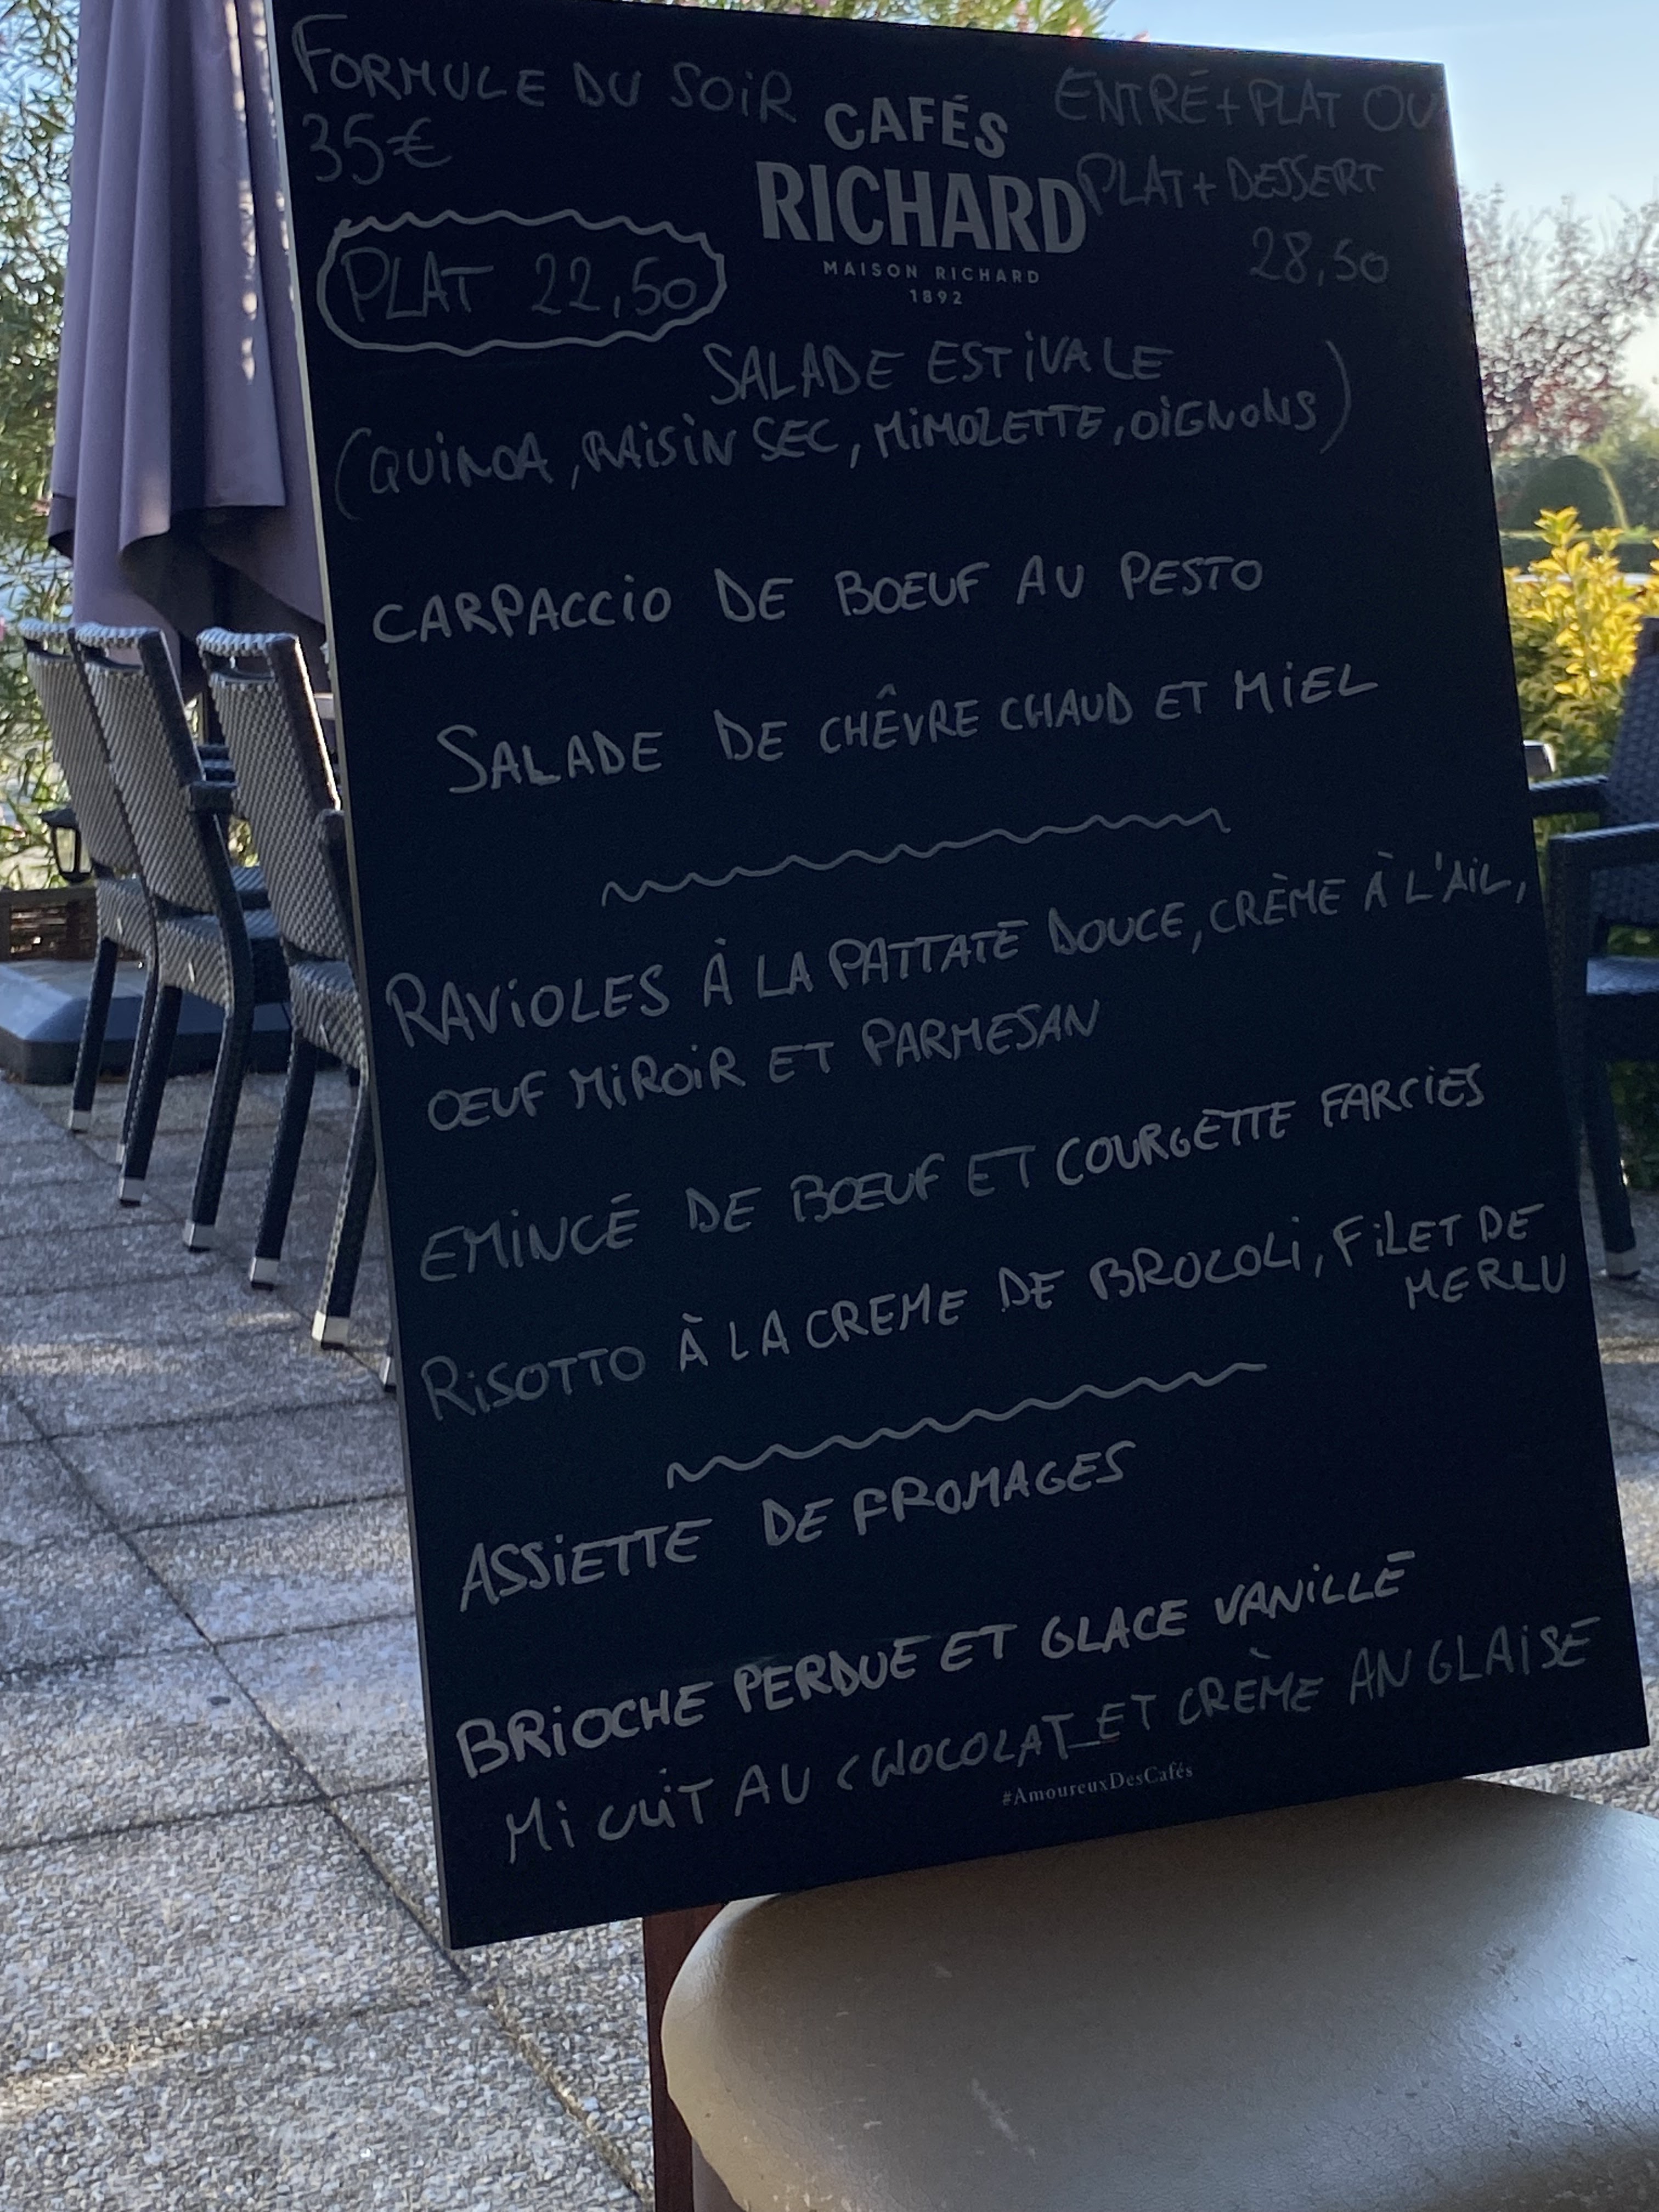 FORMULE DU SOIR
35€
ENTRÉ + PLAT OU
PLAT + DESSERT
28,50
CAFÉS
RICHARD
MAISON RICHARD
1892
PLAT 22,50
SALADE ESTIVALE
(QUINOA, RAISIN SEC, MIMOLETTE, OIGNONS)
CARPACCIO DE BOEUF AU PESTO
SALADE DE CHÊVRE CHAUD ET MIEL
RAVIOLES À LA PATTATE DOUCE, CRÈME À L'AIL,
ŒUF MIROIR ET PARMESAN
EMINCÉ DE BŒUF ET COURGETTE FARCIES
RISOTTO À LA CREME DE BROCOLI, FILET DE
MERLU
ASSIETTE DE FROMAGES
BRIOCHE PERDUE ET GLACE VANILLE
MI CUIT AU CHOCOLAT ET CRÈME ANGLAISE
#AmoureuxDesCafés